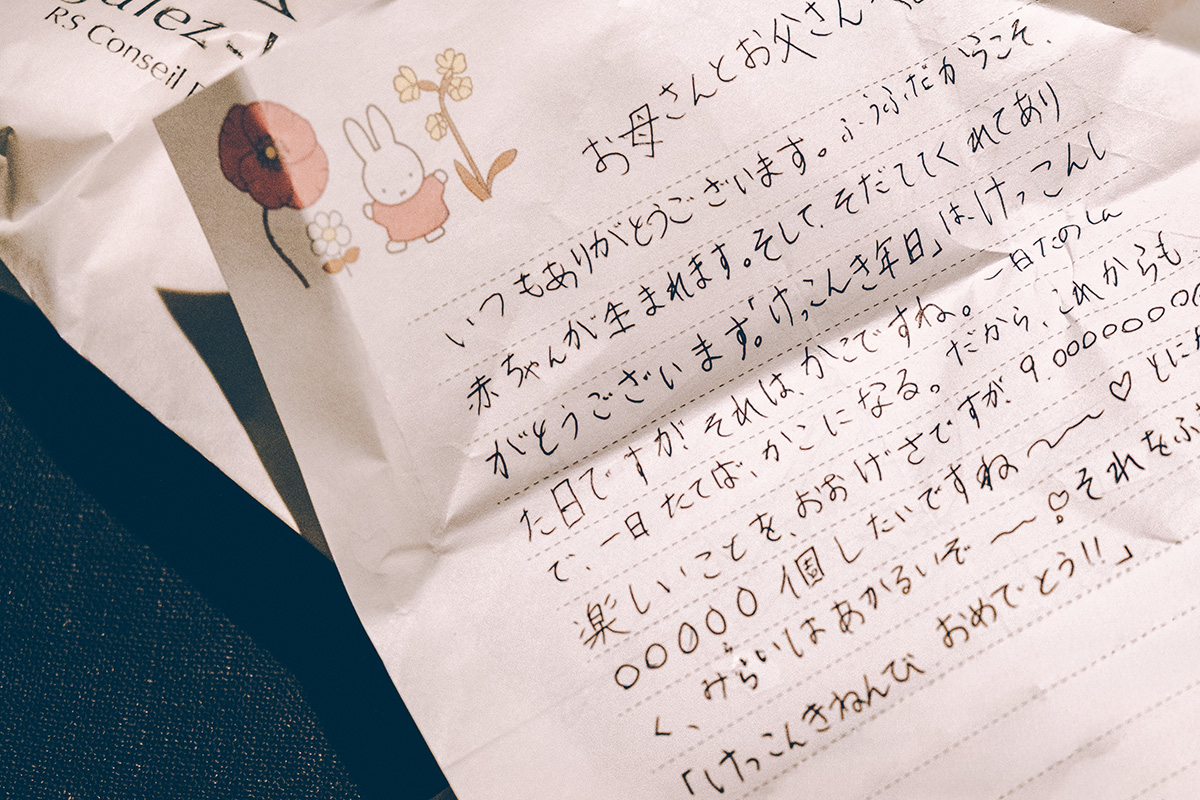 RS Conseil
お母さんとお父さん
いつもありがとうございます。ふうふだからこそ、
赤ちゃんが生まれます。そして、そだててくれてあり
がとうございます。「けっこんき年日」は、けっこんし
た日ですが、それは、かこですね。一日たの
で、一日たてば、かこになる。だから、これからも、
楽しいことを、おおげさですが、9.0000000
00000個したいですね〜〜♡とにか
く、みらいはあかるいぞ〜♡それをふ
「けっこんきねんび おめでとう!!」